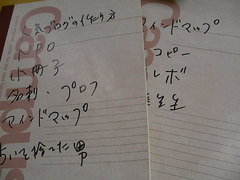 気ブログの作り方
100
小冊子
名刺・プロフ
マインドマップ
占いを捨てた男
Campus
マインドマップ
コピー
レボ
生